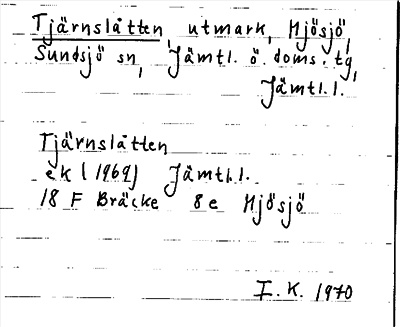 Tjärnslåtten, utmark, Hjösjö,
Sundsjö sn, Jämtl. ö. doms. tg,
Jämtl.l.
Tjärnslåtten
ek (1969) Jämtl.l.
18 F Bräcke 8e Hjösjö
I.K. 1970